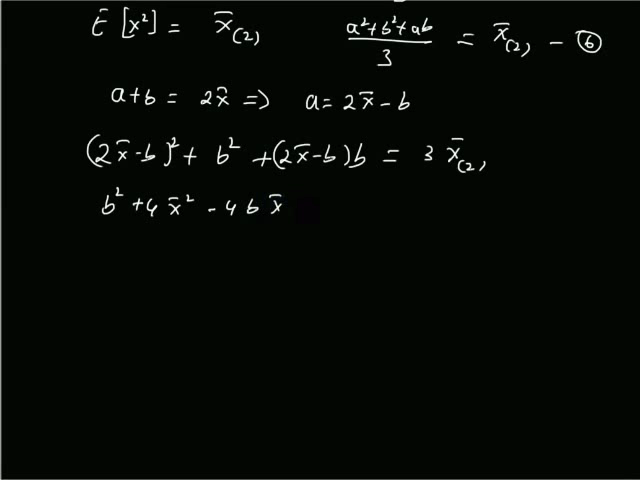 E [x²] = x̄₍₂₎   (a²+b²+ab)/3 = x̄₍₂₎ - ⑥
a+b = 2x̄ => a = 2x̄ - b
(2x̄-b)² + b² + (2x̄-b)b = 3 x̄₍₂,
b² + 4x̄² - 4bx̄